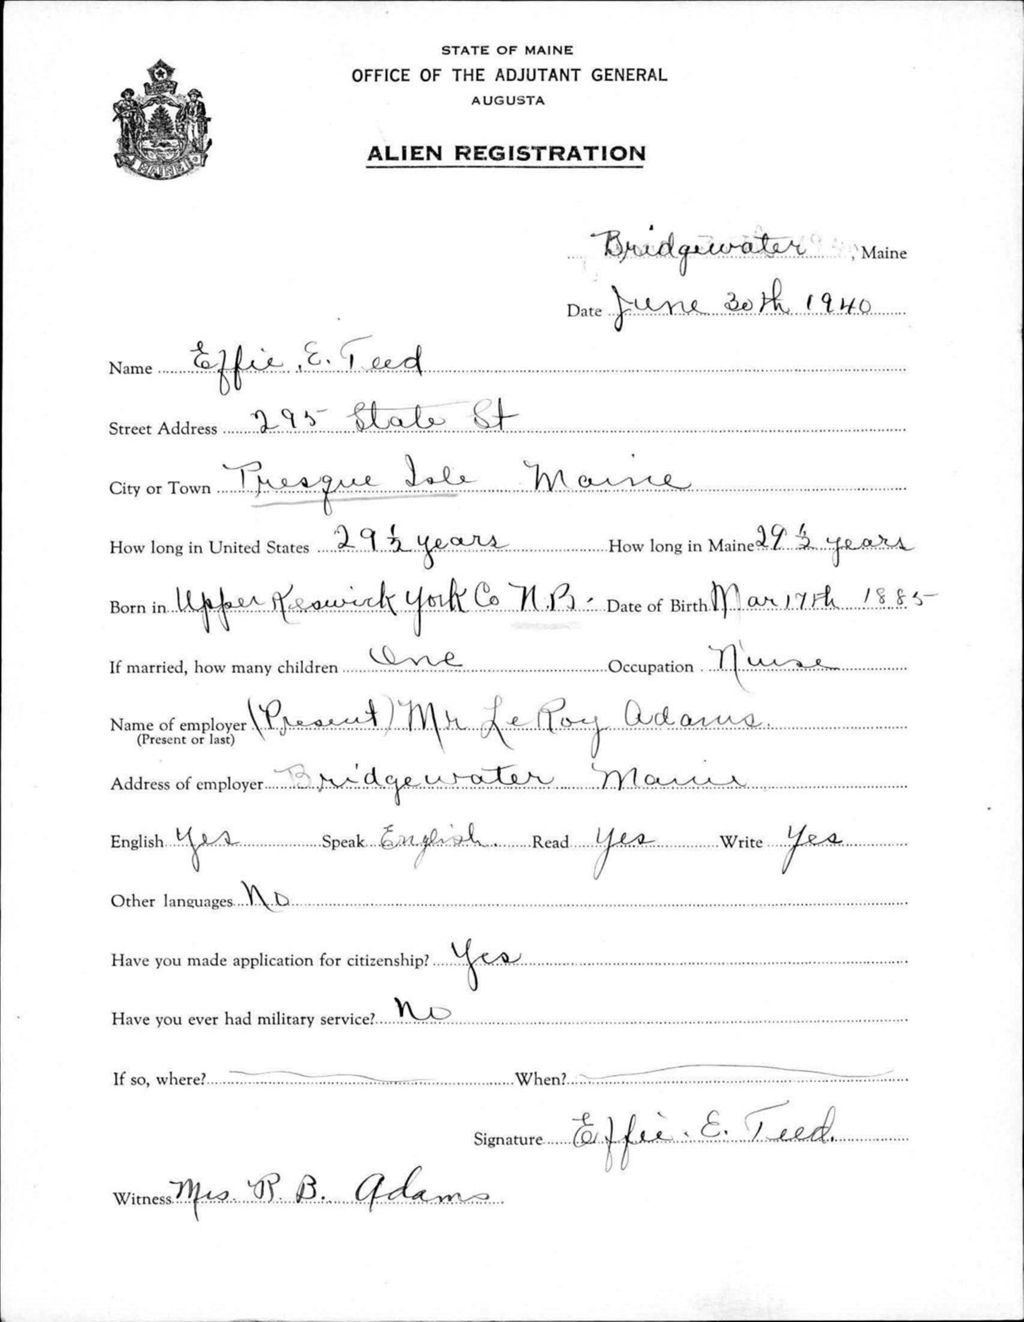 STATE OF MAINE
OFFICE OF THE ADJUTANT GENERAL
AUGUSTA
ALIEN REGISTRATION
MAINE
Bridgewater, Maine
Date June 30th 1940
Name Effie. E. Teed
Street Address 295 State St
City or Town Presque Isle Maine
How long in United States 29 1/2 years How long in Maine 29 1/2 years
Born in Upper Keswick York Co N.B. Date of Birth Mar 17th 1885
If married, how many children One Occupation Nurse
Name of employer (Present) Mr LeRoy Adams.
(Present or last)
Address of employer Bridgewater Maine
English Yes Speak English. Read Yes Write Yes
Other languages No
Have you made application for citizenship? Yes
Have you ever had military service? No
If so, where? When?
Signature Effie. E. Teed.
Witness Mrs. R. B. Adams